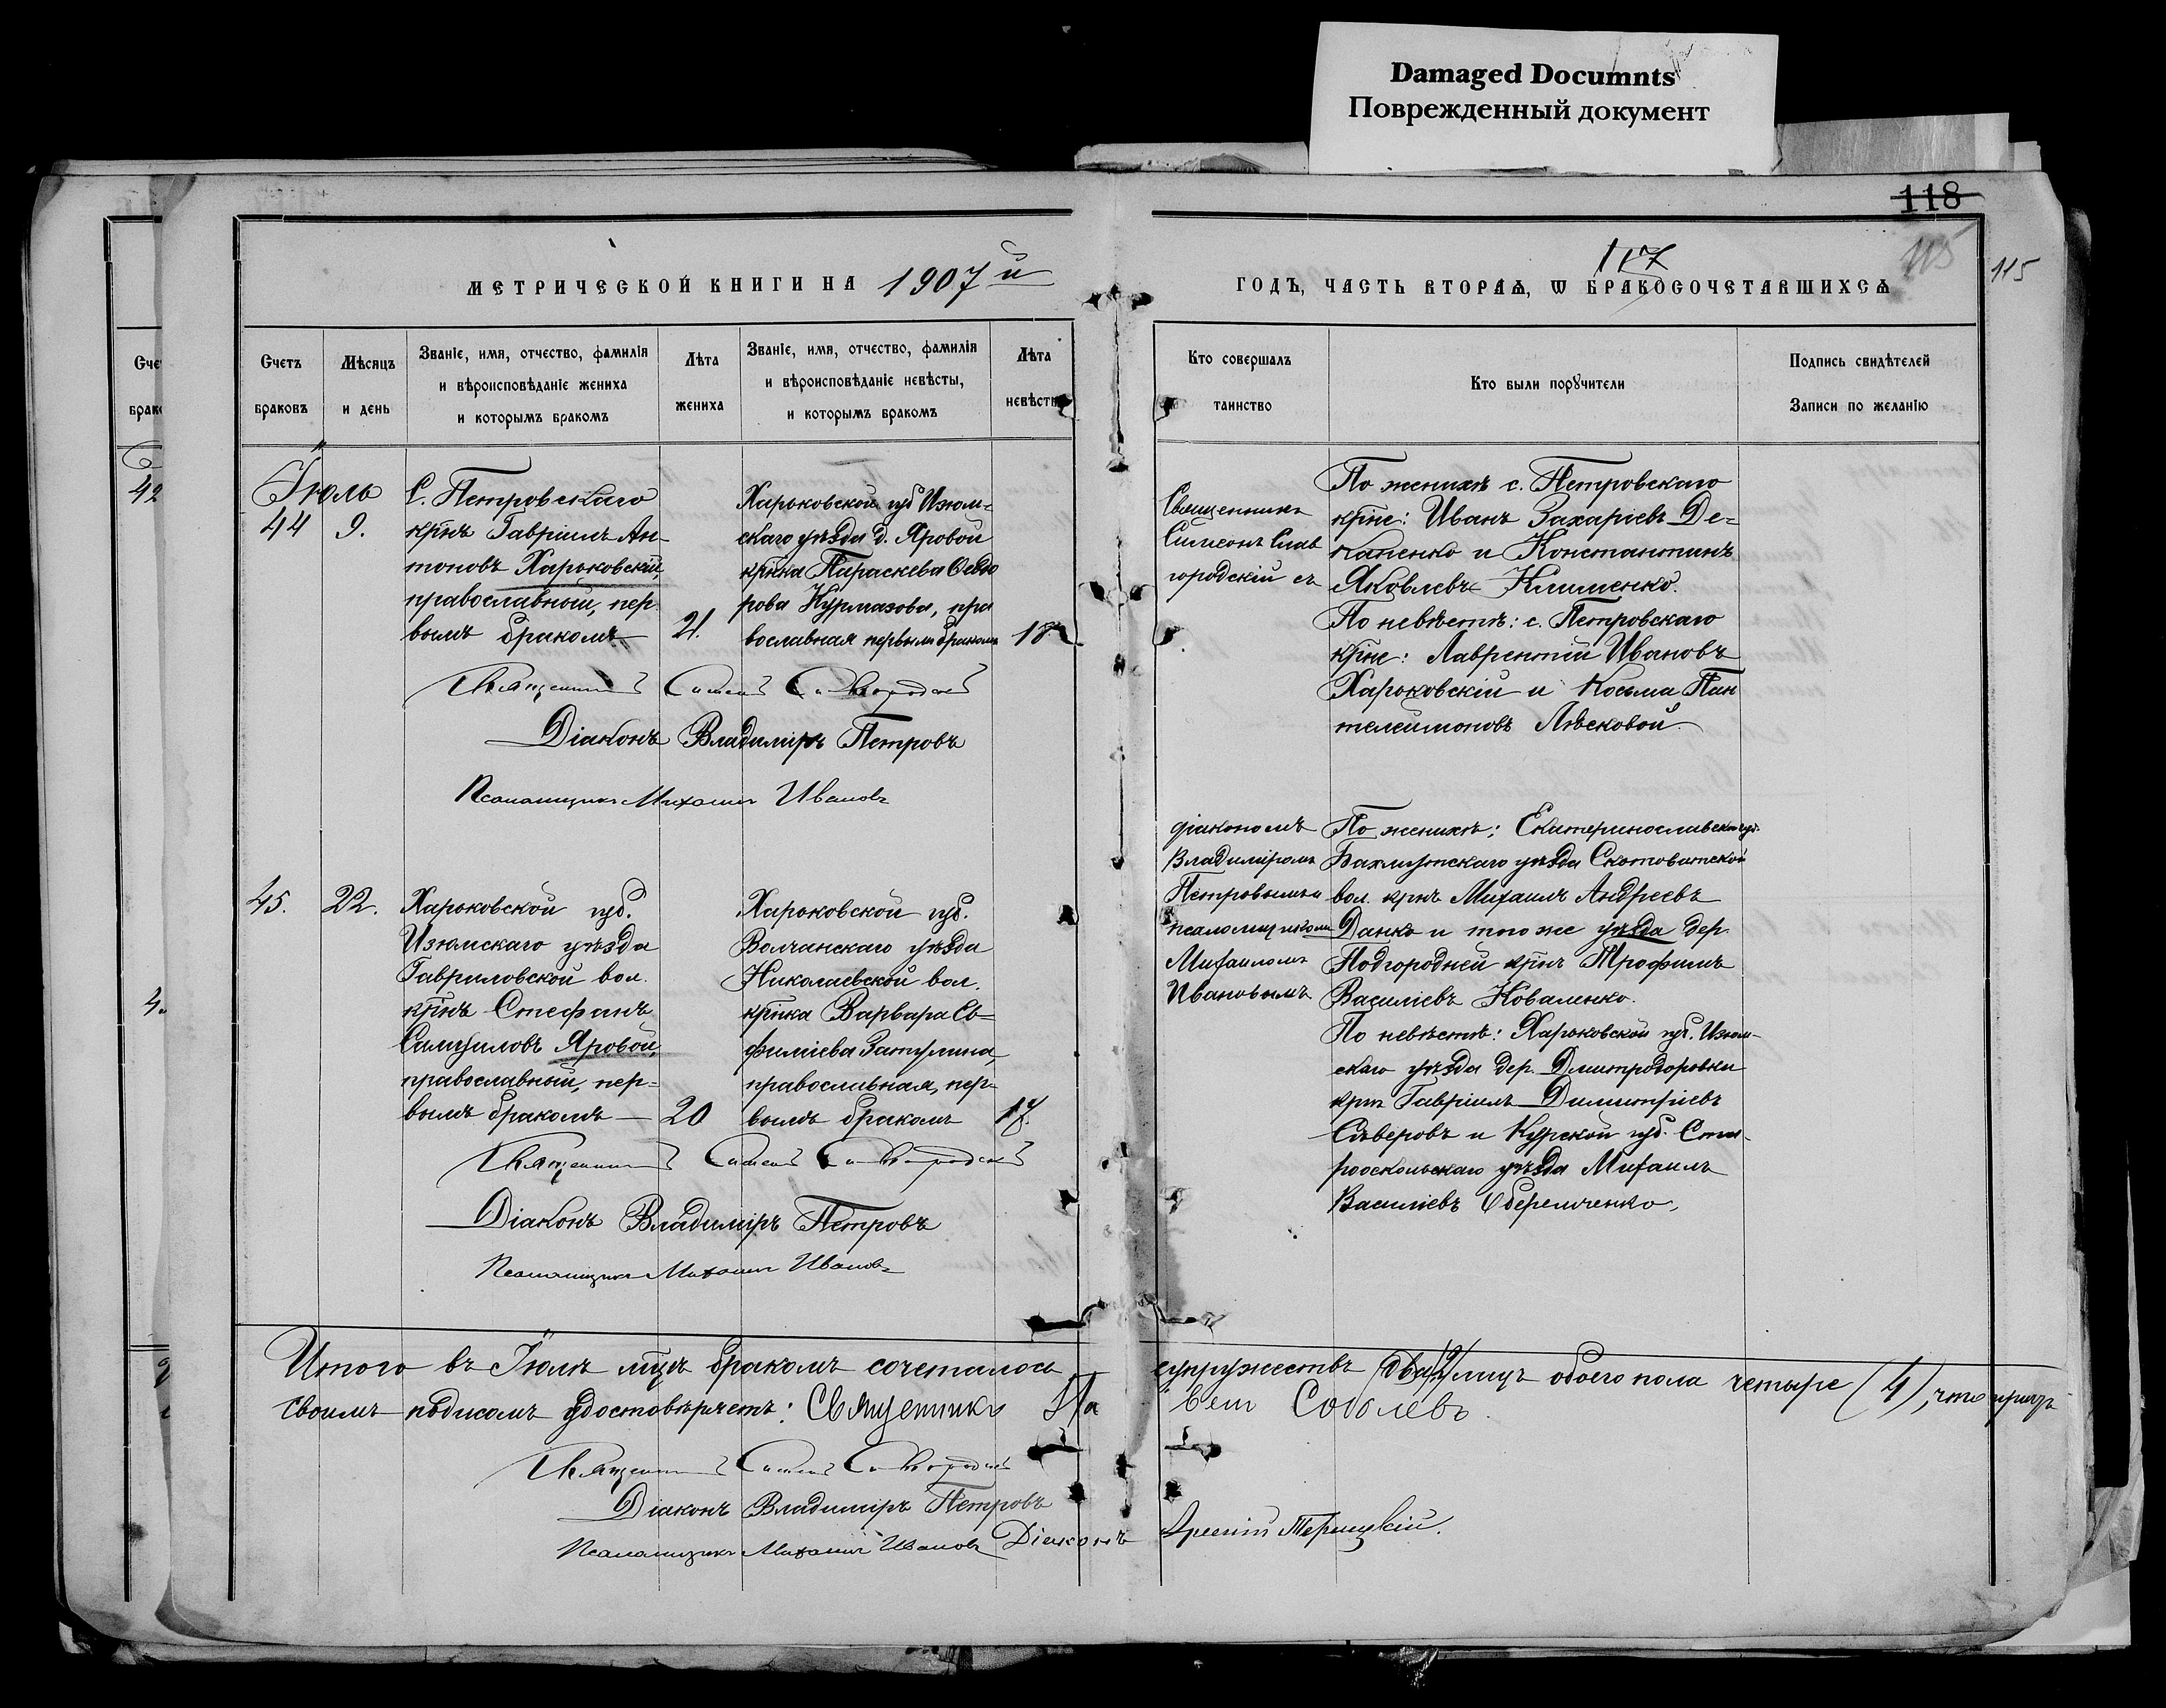 Damaged Documnts
Поврежденный документ
118
117
115
115
МЕТРИЧЕСКОЙ КНИГИ НА 1907й
ГОДЪ, ЧАСТЬ ВТОРАѦ, Ѡ БРАКОСОЧЕТАВШИХСѦ
Счетъ
браковъ
Мѣсяцъ
и день
Званіе, имя, отчество, фамилія
и вѣроисповѣданіе жениха
и которымъ бракомъ
Лѣта
жениха
Званіе, имя, отчество, фамилія
и вѣроисповѣданіе невѣсты,
и которымъ бракомъ
Лѣта
невѣсты
Кто совершалъ
таинство
Кто были порꙋчители
Подпись свидѣтелей
Записи по желанію
42
Іюль
44
9.
С. Петровскаго
крнъ Гавріилъ Ан-
тоновъ Харьковскій,
православный, пер
вымъ бракомъ
21.
Харьковской губ Изюм-
скаго уѣзда д. Яровой
крнка Параскева Ѳедо
рова Курмазова, пра
вославная первымъ бракомъ
18
Священникъ
Симеонъ Слав
городскій съ
діакономъ
Владиміромъ
Петровымъ и
псаломщикомъ
Михаиломъ
Ивановымъ
По женихѣ с. Петровскаго
крне: Иванъ Захаріевъ Де-
каленко и Константинъ
Яковлевъ Клименко.
По невѣстѣ: с. Петровскаго
крне: Лаврентій Ивановъ
Харьковскій и Косьма Пан
телеимоновъ Лѣсковой
Священникъ Симеонъ Славгородскій
Діаконъ Владиміръ Петровъ
Псаломщикъ Михаилъ Ивановъ
45.
22.
Харьковской губ.
Изюмскаго уѣзда
Гавриловской вол.
крнъ Стефанъ
Самуиловъ Яровой,
православный, пер-
вымъ бракомъ
20
Харьковской губ.
Волчанскаго уѣзда
Николаевской вол.
крнка Варвара Ев-
фиміева Затулина,
православная, пер-
вымъ бракомъ
17.
По женихѣ: Екатеринославской губ.
Бахмутскаго уѣзда Скотоватской
вол. крнъ Михаилъ Андреевъ
Данко и того же уѣзда дер.
Подгородней крнъ Трофимъ
Василіевъ Коваленко.
По невѣстѣ: Харьковской губ. Изюм-
скаго уѣзда дер. Дмитродоровки
крнъ Гавріилъ Димитріевъ
Сѣверовъ и Курской губ. Ста-
рооскольскаго уѣзда Михаилъ
Василіевъ
Священникъ Симеонъ Славгородскій
Діаконъ Владиміръ Петровъ
Псаломщикъ Михаилъ Ивановъ
Итого въ Іюлѣ мцѣ бракомъ сочеталось супружествъ два /2/ лицъ обоего пола четыре (4), что причтъ
своимъ подписомъ удостовѣряетъ: Священникъ Павелъ Соболевъ.
Священникъ Симеонъ Славгородскій
Діаконъ Владиміръ Петровъ
Псаломщикъ Михаилъ Ивановъ Діаконъ Арсеній